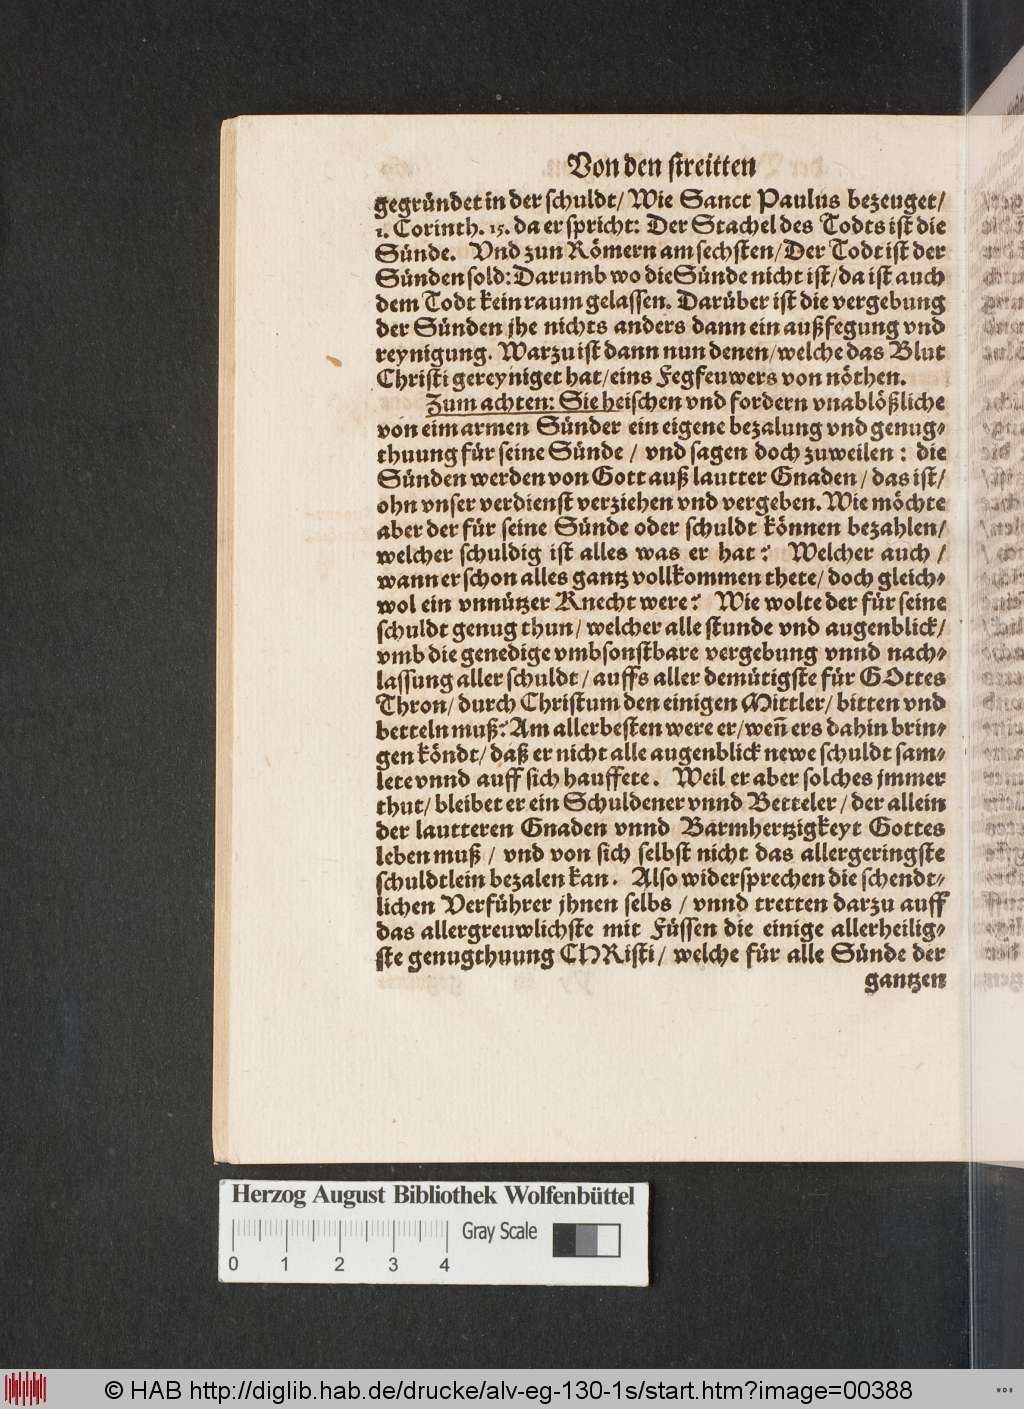 Von den streitten
gegründet in der schuldt/ Wie Sanct Paulus bezeuget/
1. Corinth. 15. da er spricht: Der Stachel des Todts ist die
Sünde. Vnd zun Römern am sechsten/ Der Todt ist der
Sünden sold: Darumb wo die Sünde nicht ist/ da ist auch
dem Todt kein raum gelassen. Darüber ist die vergebung
der Sünden jhe nichts anders dann ein außfegung vnd
reynigung. Warzu ist dann nun denen/ welche das Blut
Christi gereyniget hat/ eins Fegfeuwers von nöthen.
Zum achten: Sie heischen vnd fordern vnablößliche
von eim armen Sünder ein eigene bezalung vnd genug-
thuung für seine Sünde / vnd sagen doch zuweilen: die
Sünden werden von Gott auß lautter Gnaden/ das ist/
ohn vnser verdienst verziehen vnd vergeben. Wie möchte
aber der für seine Sünde oder schuldt können bezahlen/
welcher schuldig ist alles was er hat? Welcher auch /
wann er schon alles gantz vollkommen thete/ doch gleich-
wol ein vnnützer Knecht were? Wie wolte der für seine
schuldt genug thun/ welcher alle stunde vnd augenblick/
vmb die genedige vmbsonstbare vergebung vnnd nach-
lassung aller schuldt/ auffs aller demütigste für GOttes
Thron/ durch Christum den einigen Mittler/ bitten vnd
betteln muß? Am allerbesten were er/ weñ ers dahin brin-
gen köndt/ daß er nicht alle augenblick newe schuldt sam-
lete vnnd auff sich hauffete. Weil er aber solches jmmer
thut/ bleibet er ein Schuldener vnnd Betteler/ der allein
der lautteren Gnaden vnnd Barmhertzigkeyt Gottes
leben muß / vnd von sich selbst nicht das allergeringste
schuldtlein bezalen kan. Also widersprechen die schendt-
lichen Verführer jhnen selbs / vnnd tretten darzu auff
das allergreuwlichste mit Füssen die einige allerheilig-
ste genugthuung CHRisti/ welche für alle Sünde der
gantzen
Herzog August Bibliothek Wolfenbüttel
Gray Scale
0 1 2 3 4
© HAB http://diglib.hab.de/drucke/alv-eg-130-1s/start.htm?image=00388